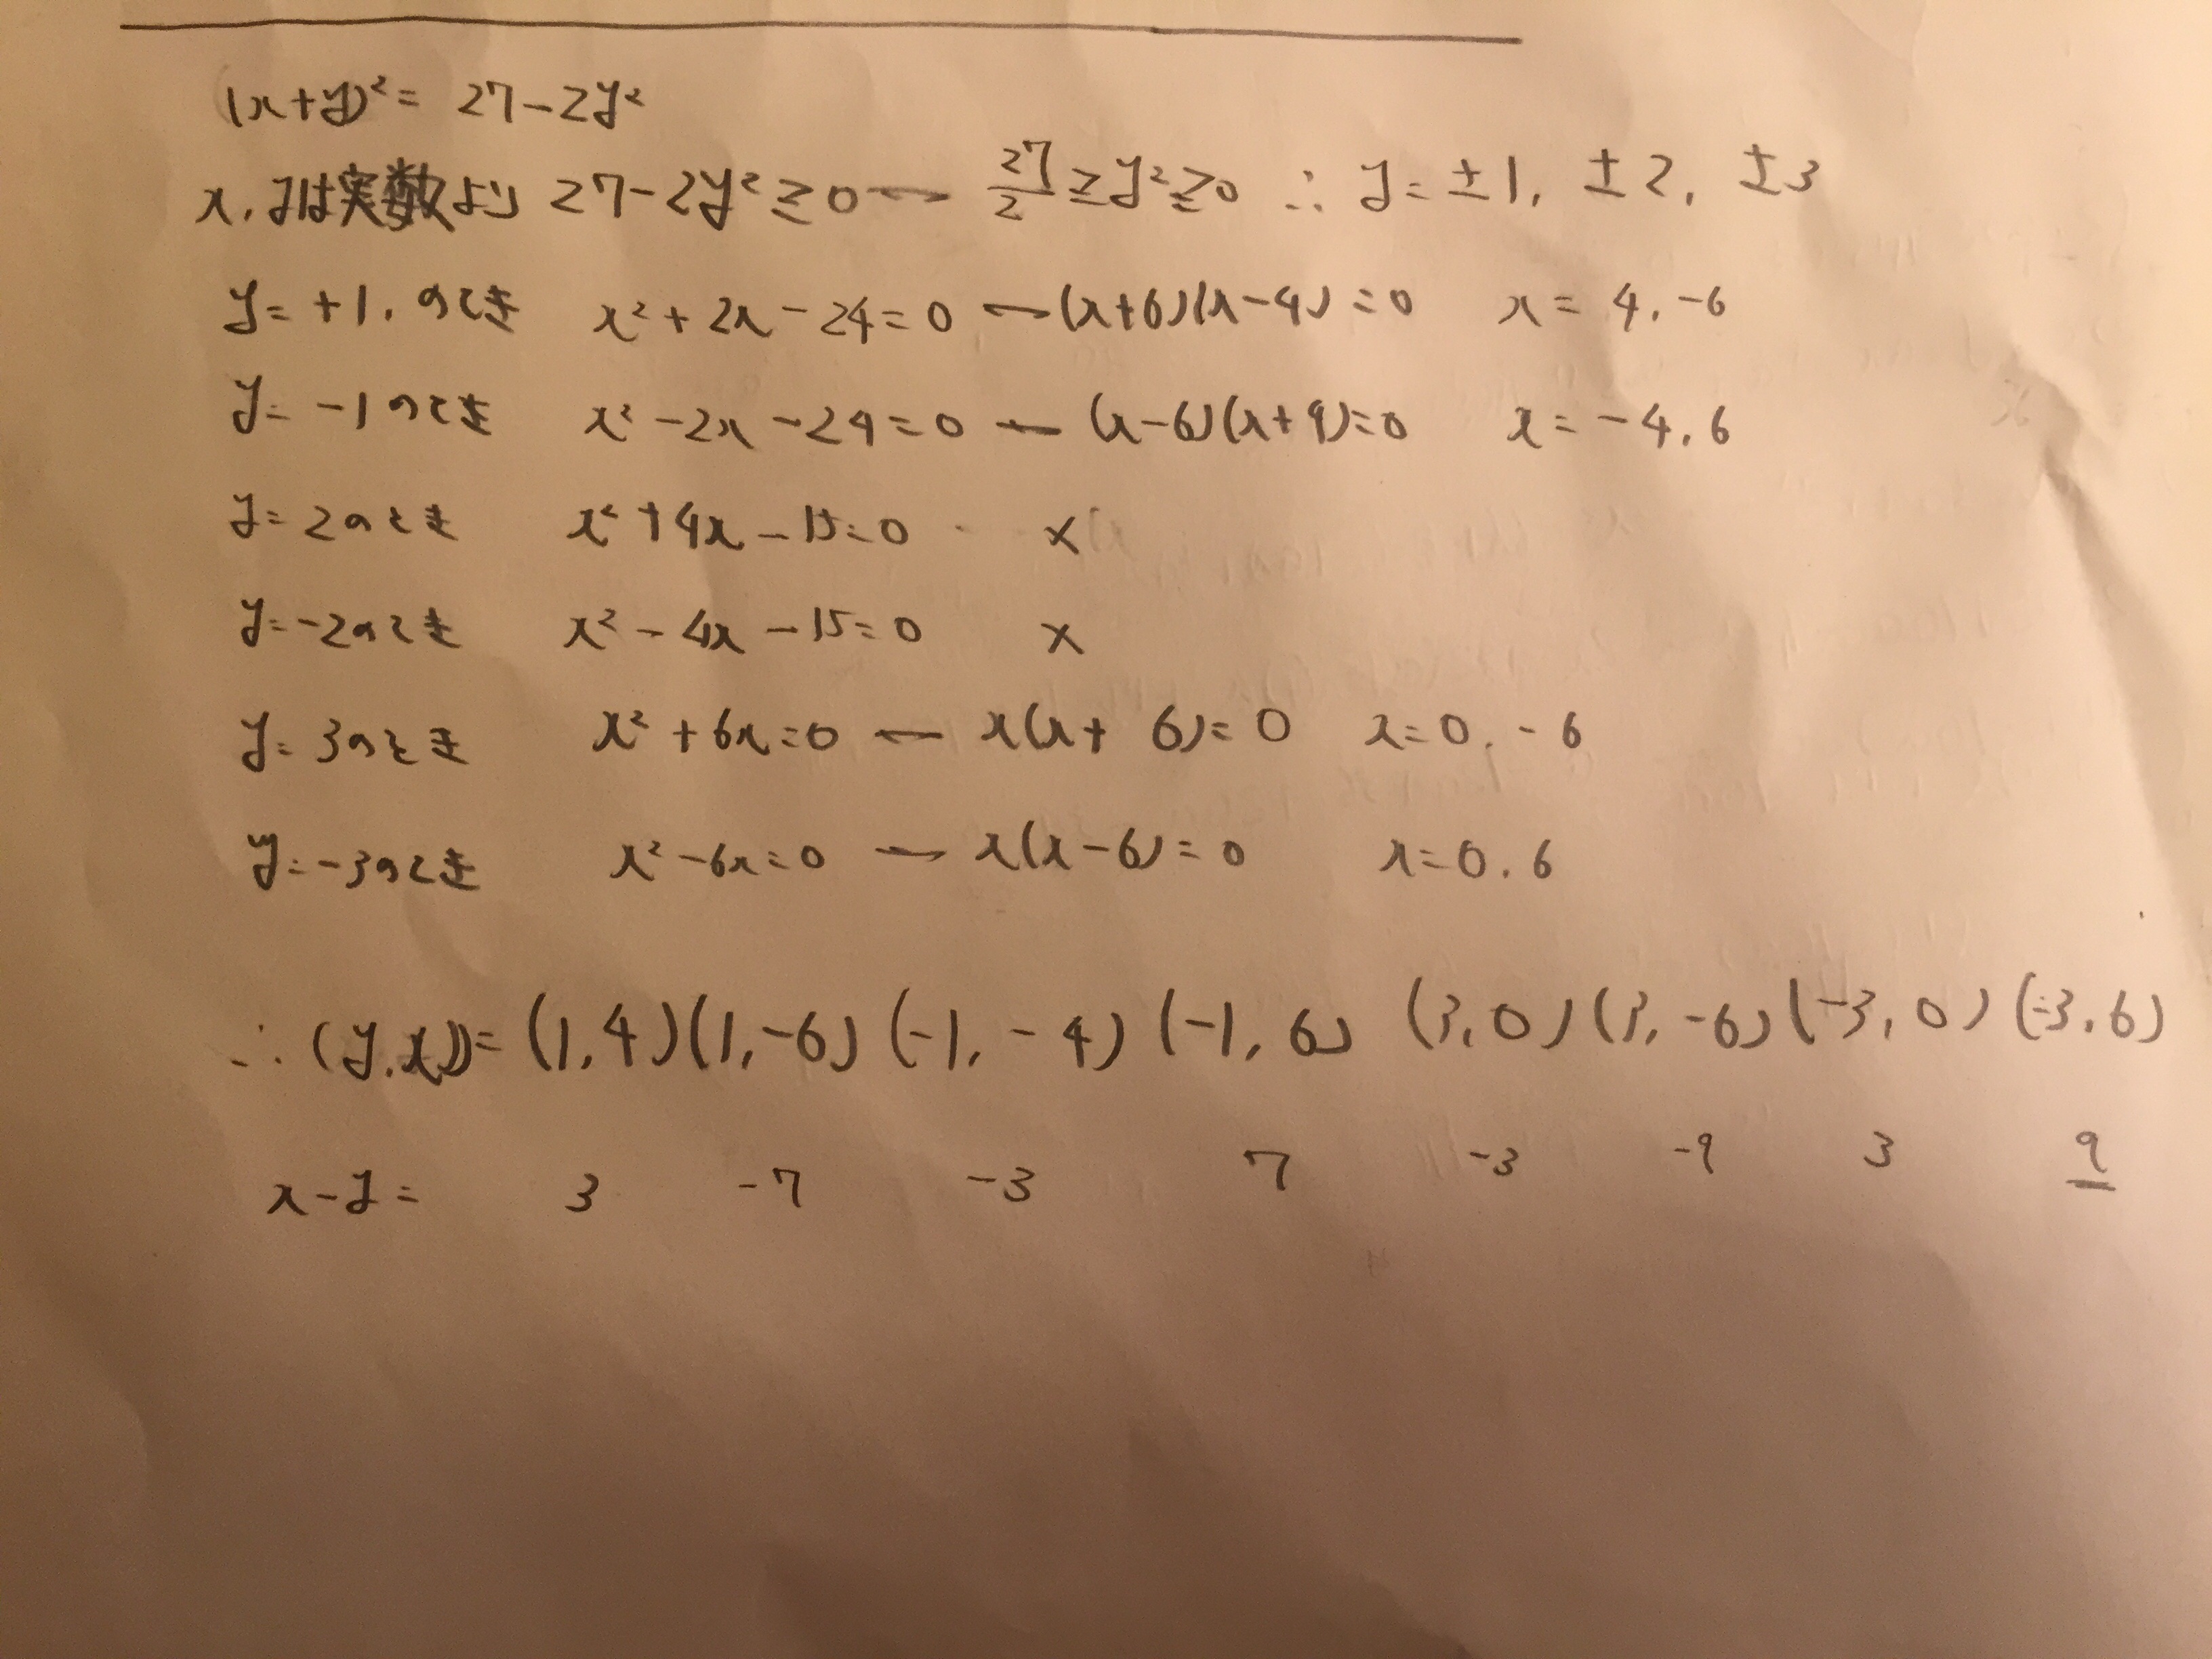 (x+y)² = 27-2y²
x, yは実数より 27-2y² ≧ 0 — 27/2 ≧ y² ≧ 0 ∴ y = ±1, ±2, ±3
y = +1, のとき x² + 2x - 24 = 0 — (x+6)(x-4) = 0 x = 4, -6
y = -1のとき x² - 2x - 24 = 0 — (x-6)(x+4) = 0 x = -4, 6
y = 2のとき x² + 4x - 15 = 0 ×
y = -2のとき x² - 4x - 15 = 0 ×
y = 3のとき x² + 6x = 0 — x(x+6) = 0 x = 0, -6
y = -3のとき x² - 6x = 0 — x(x-6) = 0 x = 0, 6
∴ (y, x) = (1, 4) (1, -6) (-1, -4) (-1, 6) (3, 0) (3, -6) (-3, 0) (-3, 6)
x - y = 3 -7 -3 7 -3 -9 3 9